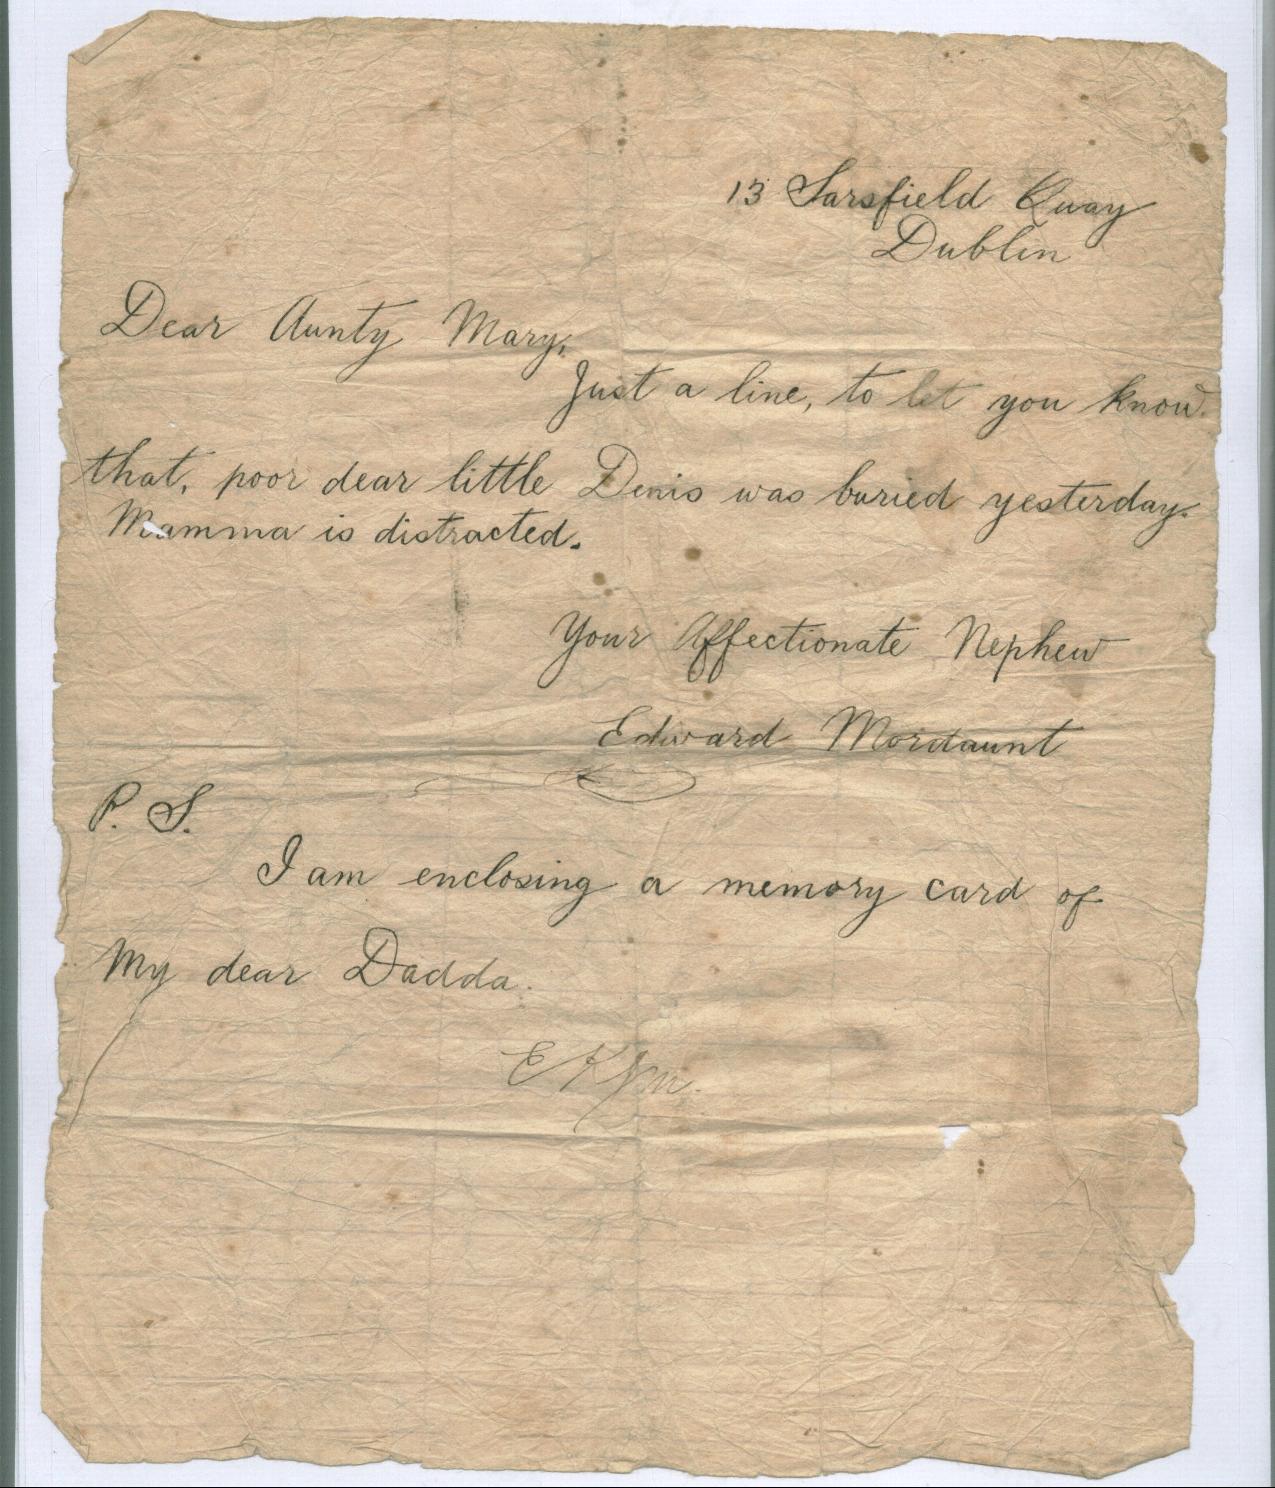 13 Sarsfield Quay
Dublin
Dear Aunty Mary,
Just a line, to let you know
that, poor dear little Denis was buried yesterday.
Mamma is distracted.
Your Affectionate Nephew
Edward Mordaunt
P. S.
I am enclosing a memory card of
My dear Dadda.